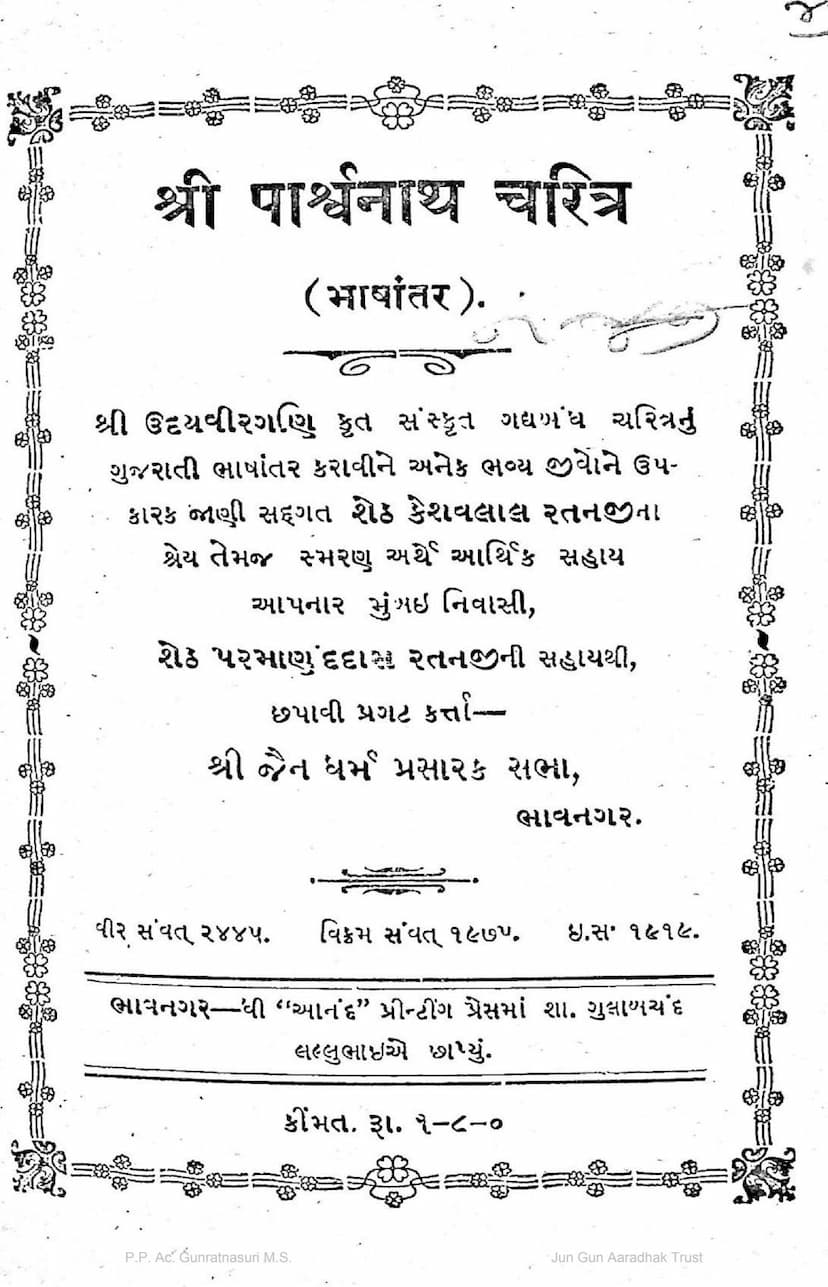 શ્રી પાર્શ્વનાથ ચરિત્ર
(ભાષાંતર).
શ્રી ઉદયવીરગણિ કૃત સંસ્કૃત ગદ્યબંધ ચરિત્રનું
ગુજરાતી ભાષાંતર કરાવીને અનેક ભવ્ય જીવોને ઉપ-
કારક જાણી સદ્ગત શેઠ કેશવલાલ રતનજીના
શ્રેય તેમજ સ્મરણ અર્થે આર્થિક સહાય
આપનાર મુંબઇ નિવાસી,
શેઠ પરમાણંદદાસ રતનજીની સહાયથી,
છપાવી પ્રગટ કર્ત્તા—
શ્રી જૈન ધર્મ પ્રસારક સભા,
ભાવનગર.
વીર સંવત્ ૨૪૪૫. વિક્રમ સંવત્ ૧૯૭૫. ઇ.સ. ૧૯૧૯.
ભાવનગર—ધી “આનંદ” પ્રીન્ટીંગ પ્રેસમાં શા. ગુલાબચંદ
લલ્લુભાઇએ છાપ્યું.
કીંમત. રૂા. ૧-૮-૦
P.P. Ac. Gunratnasuri M.S. Jun Gun Aaradhak Trust